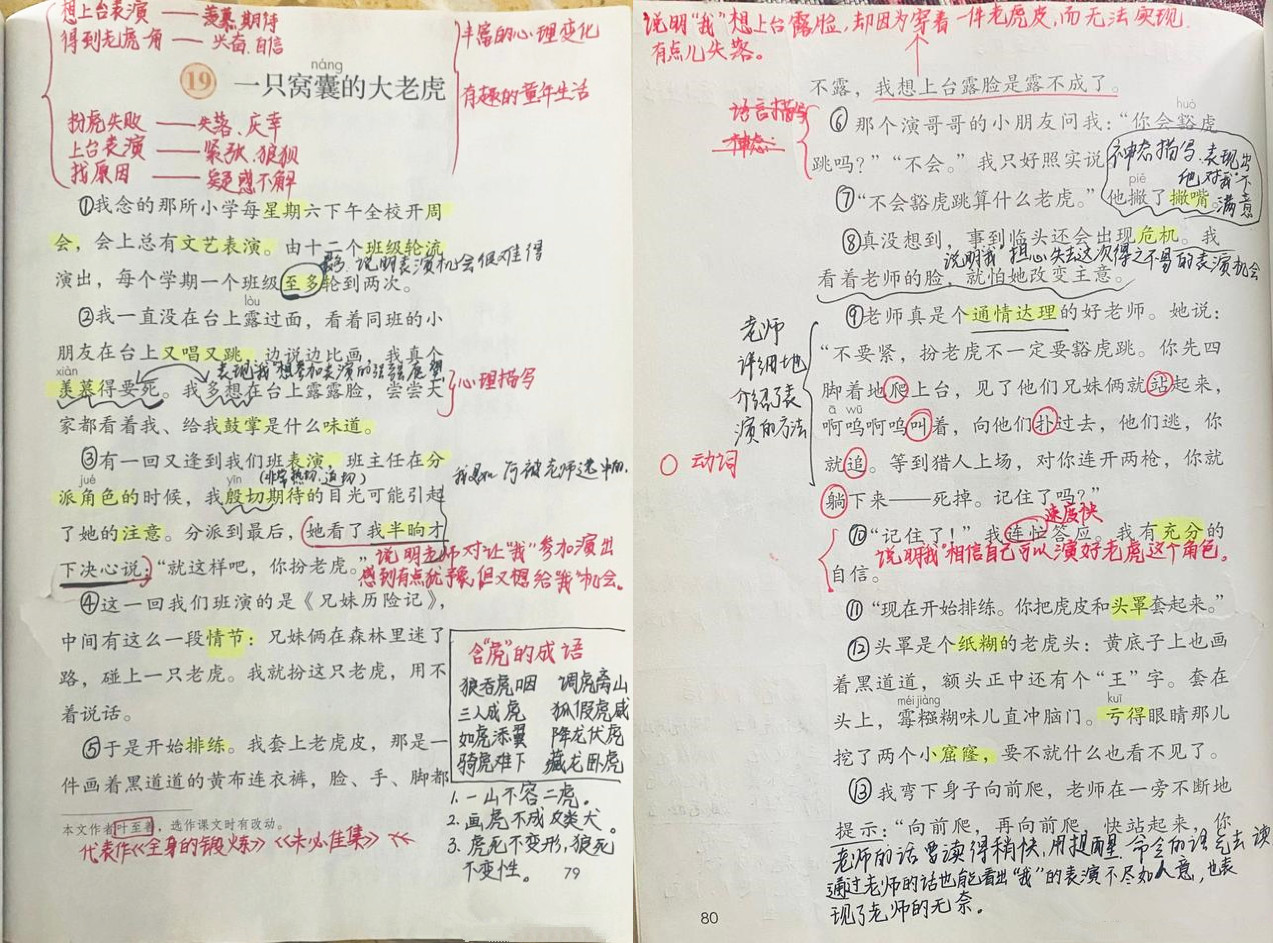 想上台表演——羡慕、期待
得到老虎角——兴奋、自信
丰富的心理变化
náng
19 一只窝囊的大老虎
有趣的童年生活
扮虎失败——失落、庆幸
上台表演——紧张、狼狈
找原因——疑惑不解
①我念的那所小学每星期六下午全校开周
会，会上总有文艺表演。由十二个班级轮流
说明表演机会很难得
演出，每个学期一个班级至多轮到两次。
lòu
②我一直没在台上露过面，看着同班的小
朋友在台上又唱又跳、边说边比画，我真个
xiàn
表现"我"想参加表演的
羡慕得要死。我多想在台上露露脸，尝尝大
心理描写
家都看着我、给我鼓掌是什么味道。
③有一回又逢到我们班表演，班主任在分
jué
yīn
(非常热切、迫切)
派角色的时候，我殷切期待的目光可能引起
被老师选中的.
了她的注意。分派到最后，她看了我半晌才
下决心说："就这样吧，你扮老虎。"
说明老师对让"我"参加演出
感到有点犹豫，但又想给"我"机会。
④这一回我们班演的是《兄妹历险记》，
中间有这么一段情节：兄妹俩在森林里迷了
路，碰上一只老虎。我就扮这只老虎，用不
着说话。
⑤于是开始排练。我套上老虎皮，那是一
件画着黑道道的黄布连衣裤，脸、手、脚都
含"虎"的成语
狼吞虎咽 调虎离山
三人成虎 狐假虎威
如虎添翼 降龙伏虎
骑虎难下 藏龙卧虎
1. 一山不容二虎。
2. 画虎不成反类犬。
3. 虎死不变形，狼死
不变性。
本文作者叶至善，选作课文时有改动。
代表作《全身的锻炼》《未必佳集》
79
说明"我"想上台露脸，却因为穿着一件老虎皮，而无法实现.
有点儿失落。
不露，我想上台露脸是露不成了。
语言描写
神态
huō
⑥那个演哥哥的小朋友问我："你会豁虎
跳吗？""不会。"我只好照实说
神态描写.表现出
他对"我"不
满意
piě
⑦"不会豁虎跳算什么老虎。"他撇了撇嘴。
⑧真没想到，事到临头还会出现危机。我
说明"我"担心失去这次得之不易的表演机会
看着老师的脸，就怕她改变主意。
⑨老师真是个通情达理的好老师。她说：
老师
详细地
介绍了表
演的方法
"不要紧，扮老虎不一定要豁虎跳。你先四
脚着地爬上台，见了他们兄妹俩就站起来，
ā wū
啊呜啊呜叫着，向他们扑过去，他们逃，你
动词
就追。等到猎人上场，对你连开两枪，你就
躺下来——死掉。记住了吗？"
速度快
⑩"记住了！"我连忙答应。我有充分的
说明"我"相信自己可以演好老虎这个角色。
自信。
⑪"现在开始排练。你把虎皮和头罩套起来。"
⑫头罩是个纸糊的老虎头：黄底子上也画
着黑道道，额头正中还有个"王"字。套在
méi jiàng
kuī
头上，霉糨糊味儿直冲脑门。亏得眼睛那儿
挖了两个小窟窿，要不就什么也看不见了。
⑬我弯下身子向前爬，老师在一旁不断地
提示："向前爬，再向前爬，快站起来，你
老师的话要读得稍快，用提醒、命令的语气去读
通过老师的话也能看出"我"的表演不尽如人意，也表
现了老师的无奈。
80